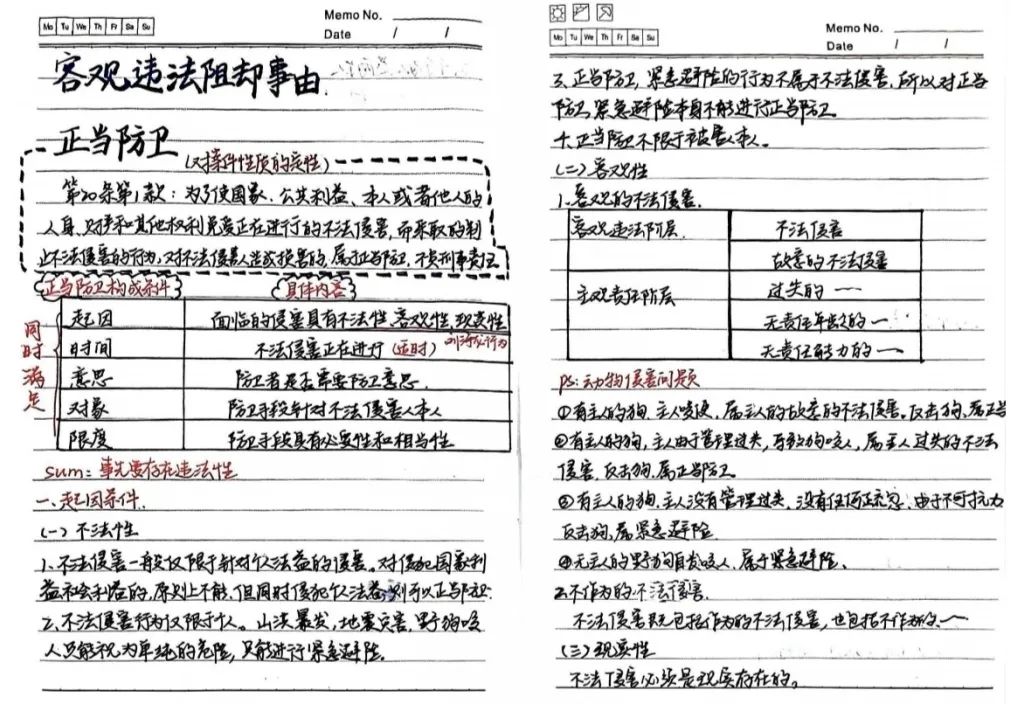 Mo Tu We Th Fr Sa Su
Memo No.
Date / /
客观违法阻却事由
正当防卫
(对案件性质的定性)
第20条第1款：为了使国家、公共利益、本人或者他人的
人身、财产和其他权利免受正在进行的不法侵害，而采取的制
止不法侵害的行为，对不法侵害人造成损害的，属于正当防卫，不负刑事责任
正当防卫构成条件 具体内容
同时满足
起因 面临的侵害具有不法性、客观性、现实性
时间 不法侵害正在进行(适时)
意思 防卫者是否需要防卫意思.
对象 防卫手段针对不法侵害人本人
限度 防卫手段具有必要性和相当性
sum: 事先要存在违法性
一、起因条件.
(一) 不法性
1、不法侵害一般仅限于针对个人法益的侵害。对侵犯国家利
益和公共利益的，原则上不能，但同时侵犯个人法益，则可以正当防卫.
2、不法侵害行为仅限于人。山洪暴发，地震灾害，野狗咬
人只能视为单纯的危险，只能进行紧急避险.
Mo Tu We Th Fr Sa Su
Memo No.
Date / /
3、正当防卫，紧急避险的行为不属于不法侵害，所以对正当
防卫，紧急避险本身不能进行正当防卫
4、正当防卫不限于被害人本人。
(二) 客观性
1.客观的不法侵害.
客观违法阶层. 不法侵害
主观责任阶层 故意的不法侵害
过失的 一一
无责任年龄的一
无责任能力的一
ps:动物侵害问题
①有主人的狗，主人唆使，属主人的故意的不法侵害。反击狗，属正当
②有主人的狗，主人由于管理过失，导致狗咬人，属主人过失的不法
侵害，反击狗，属正当防卫
③有主人的狗，主人没有管理过失，没有任何过错，由于不可抗力
反击狗，属紧急避险
④无主人的野狗自发咬人，属于紧急避险、
2.不作为的不法侵害.
不法侵害既包括作为的不法侵害，也包括不作为的、一
(三) 现实性
不法侵害必须是现实存在的。